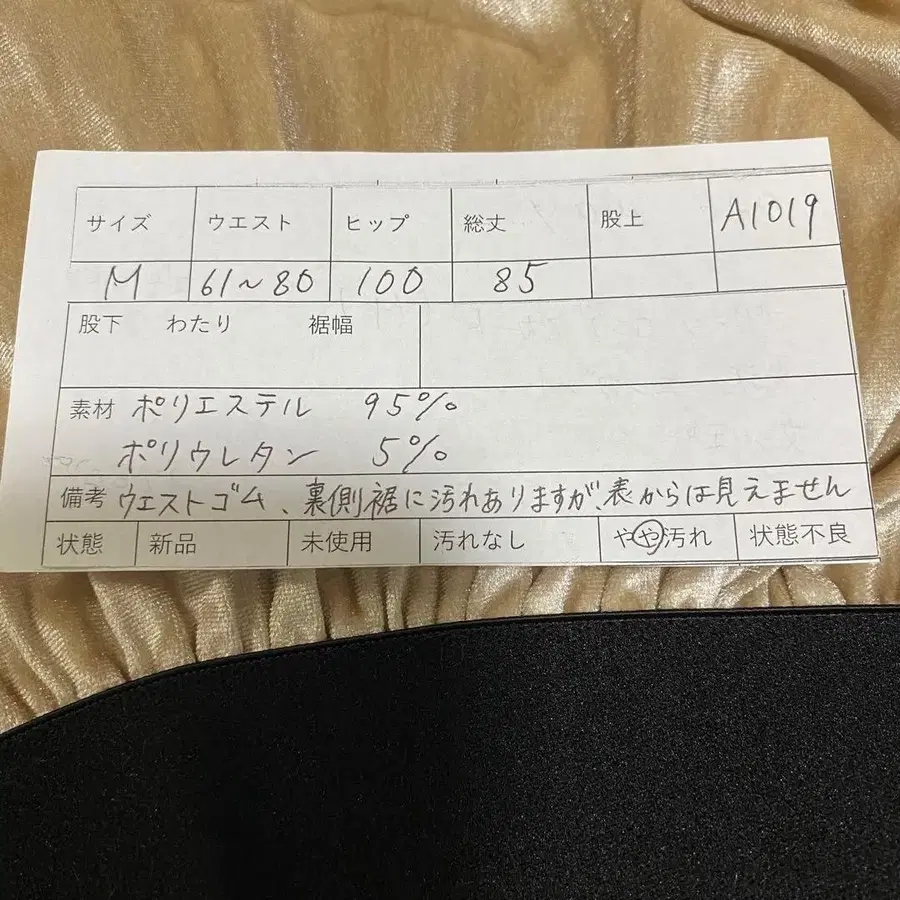 サイズ ウエスト ヒップ 総丈 股上 A1019
M 61~80 100 85
股下 わたり 裾幅
素材 ポリエステル 95%
ポリウレタン 5%
備考 ウエストゴム、裏側裾に汚れありますが、表からは見えません
状態 新品 未使用 汚れなし やや汚れ 状態不良